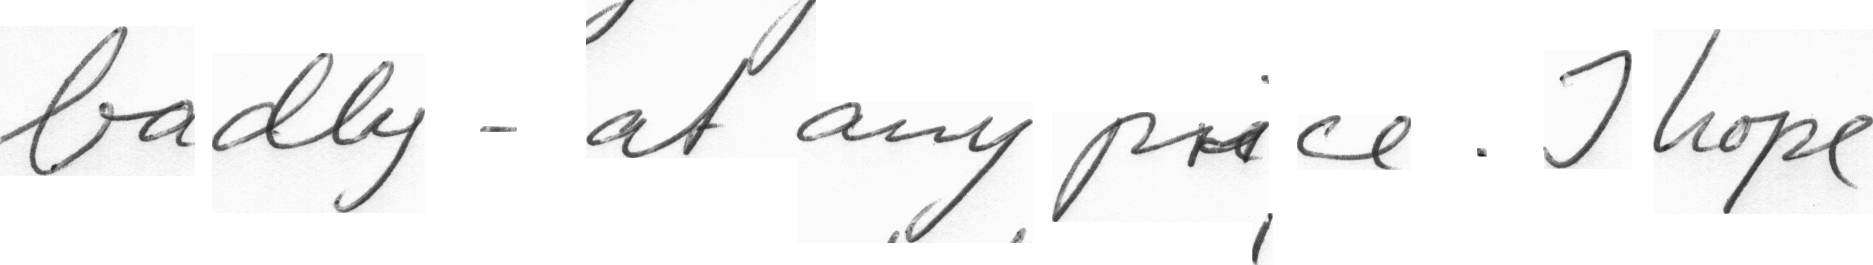 badly - at any price . I hope